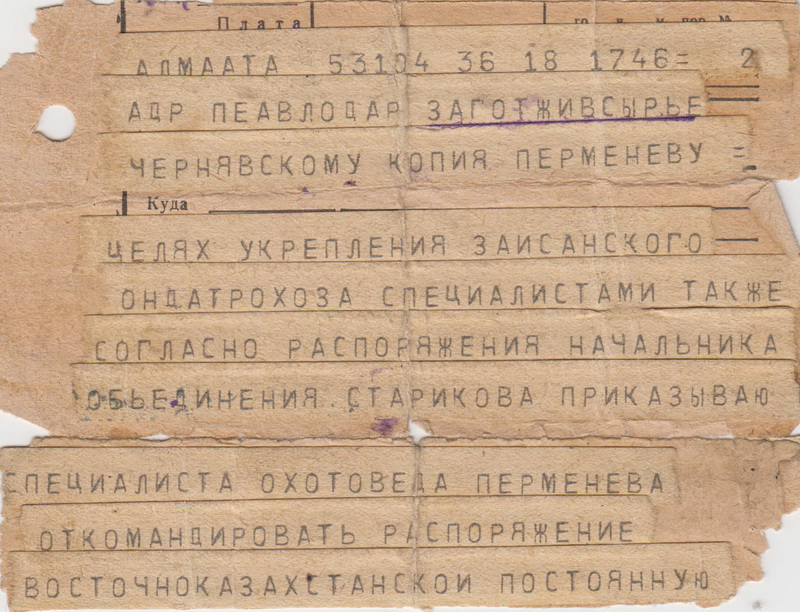 Плата
АЛМААТА 53104 36 18 1746= 2
АДР ПЕАВЛОДАР ЗАГОТЖИВСЫРЬЕ
ЧЕРНЯВСКОМУ КОПИЯ ПЕРМЕНЕВУ =
Куда
ЦЕЛЯХ УКРЕПЛЕНИЯ ЗАИСАНСКОГО
ОНДАТРОХОЗА СПЕЦИАЛИСТАМИ ТАКЖЕ
СОГЛАСНО РАСПОРЯЖЕНИЯ НАЧАЛЬНИКА
ОБЬЕДИНЕНИЯ СТАРИКОВА ПРИКАЗЫВАЮ
ПЕЦИАЛИСТА ОХОТОВЕДА ПЕРМЕНЕВА
ОТКОМАНДИРОВАТЬ РАСПОРЯЖЕНИЕ
ВОСТОЧНОКАЗАХСТАНСКОИ ПОСТОЯННУЮ